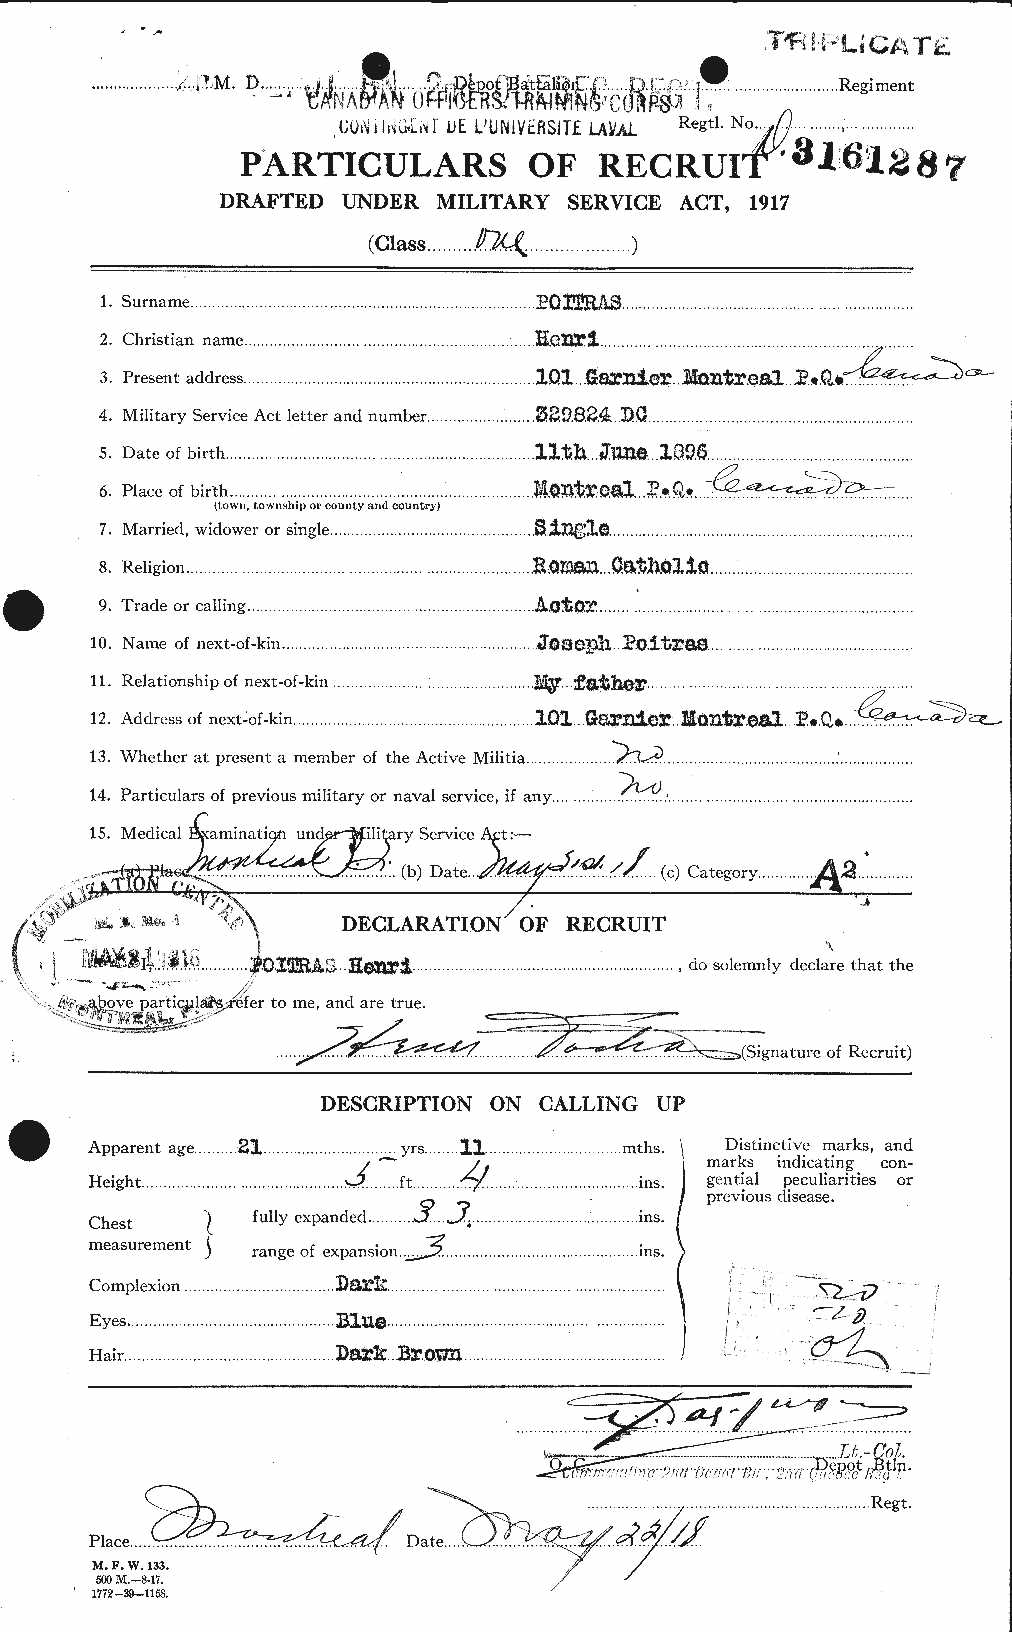 TRIPLICATE
M. D. Depot Battalion Regiment
CANADIAN OFFICERS TRAINING CORPS
CONTINGENT DE L'UNIVERSITE LAVAL Regtl. No. D. 3161287
PARTICULARS OF RECRUIT
DRAFTED UNDER MILITARY SERVICE ACT, 1917
(Class One )
1. Surname POITRAS
2. Christian name Henri
3. Present address 101 Garnier Montreal P.Q. Canada
4. Military Service Act letter and number 329824 DC
5. Date of birth 11th June 1896
6. Place of birth Montreal P.Q. Canada
(town, township or county and country)
7. Married, widower or single Single
8. Religion Roman Catholic
9. Trade or calling Actor
10. Name of next-of-kin Joseph Poitras
11. Relationship of next-of-kin My father
12. Address of next-of-kin 101 Garnier Montreal P.Q. Canada
13. Whether at present a member of the Active Militia no
14. Particulars of previous military or naval service, if any no.
15. Medical Examination under Military Service Act:—
(a) Place Montreal (b) Date May 21st. 18 (c) Category A2
MOBILIZATION CENTRE
M. D. No. 4
DECLARATION OF RECRUIT
I, POITRAS Henri , do solemnly declare that the
above particulars refer to me, and are true.
MONTREAL, P.
Henri Poitras (Signature of Recruit)
DESCRIPTION ON CALLING UP
Apparent age 21 yrs. 11 mths.
Height 5 ft. 4 ins.
Chest measurement } fully expanded 33. ins.
range of expansion 3 ins.
Complexion Dark
Eyes Blue
Hair Dark Brown
Distinctive marks, and
marks indicating con-
gential peculiarities or
previous disease.
20
20
Lt.-Col.
O. C. Commanding 2nd Depot Bn., 2nd Quebec Regt. Depot Btln.
Regt.
Place Montreal Date May 22/18
M. F. W. 133.
500 M.—8-17.
1772—39—1158.